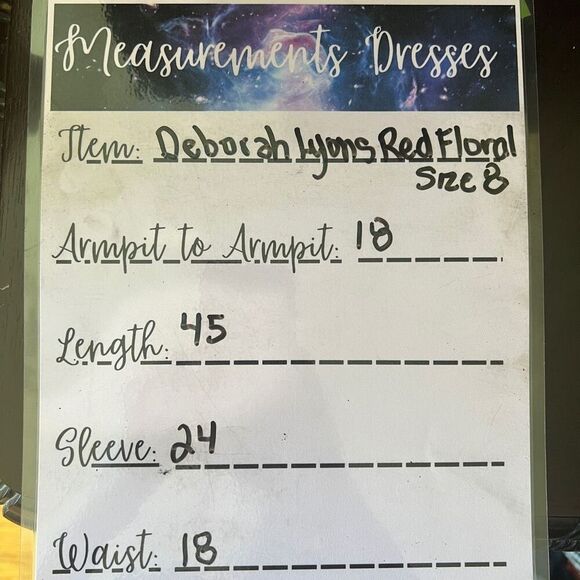 Measurements Dresses
Item: Deborah Lyons Red Floral
Size 8
Armpit to Armpit: 18
Length: 45
Sleeve: 24
Waist: 18